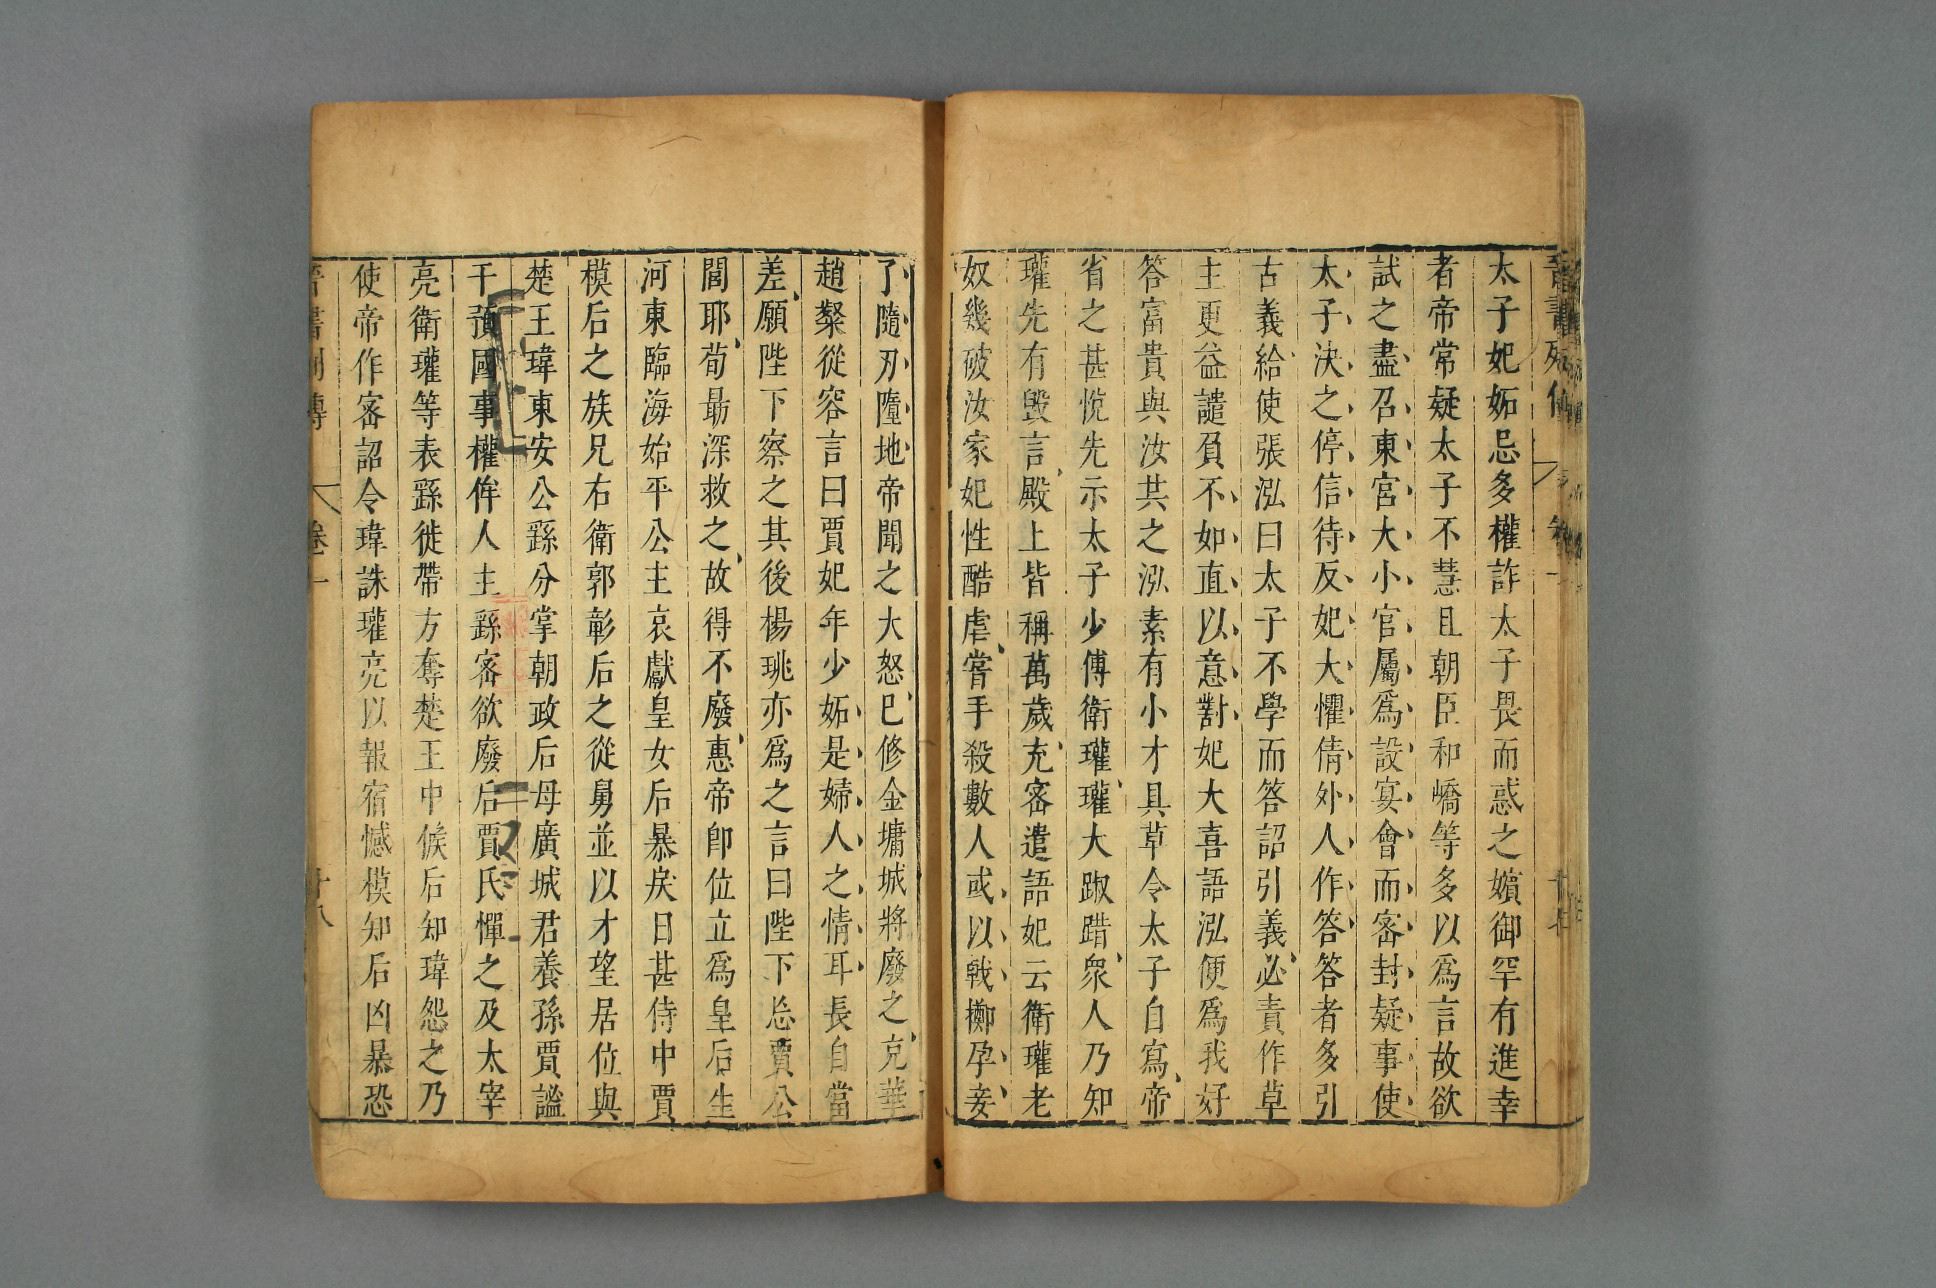 晉書列傳 卷一 十七
太子妃妬忌多權詐太子畏而惑之嬪御罕有進幸
者帝常疑太子不慧且朝臣和嶠等多以爲言故欲
試之盡召東宮大小官屬爲設宴會而密封疑事使
太子決之停信待反妃大懼倩外人作答答者多引
古義給使張泓曰太子不學而答詔引義必責作草
主更益譴負不如直以意對妃大喜語泓便爲我好
答富貴與汝共之泓素有小才具草令太子自寫帝
省之甚悅先示太子少傅衛瓘瓘大踧踖衆人乃知
瓘先有毀言殿上皆稱萬歲充密遣語妃云衛瓘老
奴幾破汝家妃性酷虐嘗手殺數人或以戟擲孕妾
子隨刃墮地帝聞之大怒已修金墉城將廢之充華
趙粲從容言曰賈妃年少妬是婦人之情耳長自當
差願陛下察之其後楊珧亦爲之言曰陛下忘賈公
閭耶荀勗深救之故得不廢惠帝卽位立爲皇后生
河東臨海始平公主哀獻皇女后暴戾日甚侍中賈
模后之族兄右衛郭彰后之從舅並以才望居位與
楚王瑋東安公繇分掌朝政后母廣城君養孫賈謐
干預國事權侔人主繇密欲廢后賈氏憚之及太宰
亮衛瓘等表繇徙帶方奪楚王中候后知瑋怨之乃
使帝作密詔令瑋誅瓘亮以報宿憾模知后凶暴恐
晉書列傳 卷一 十八